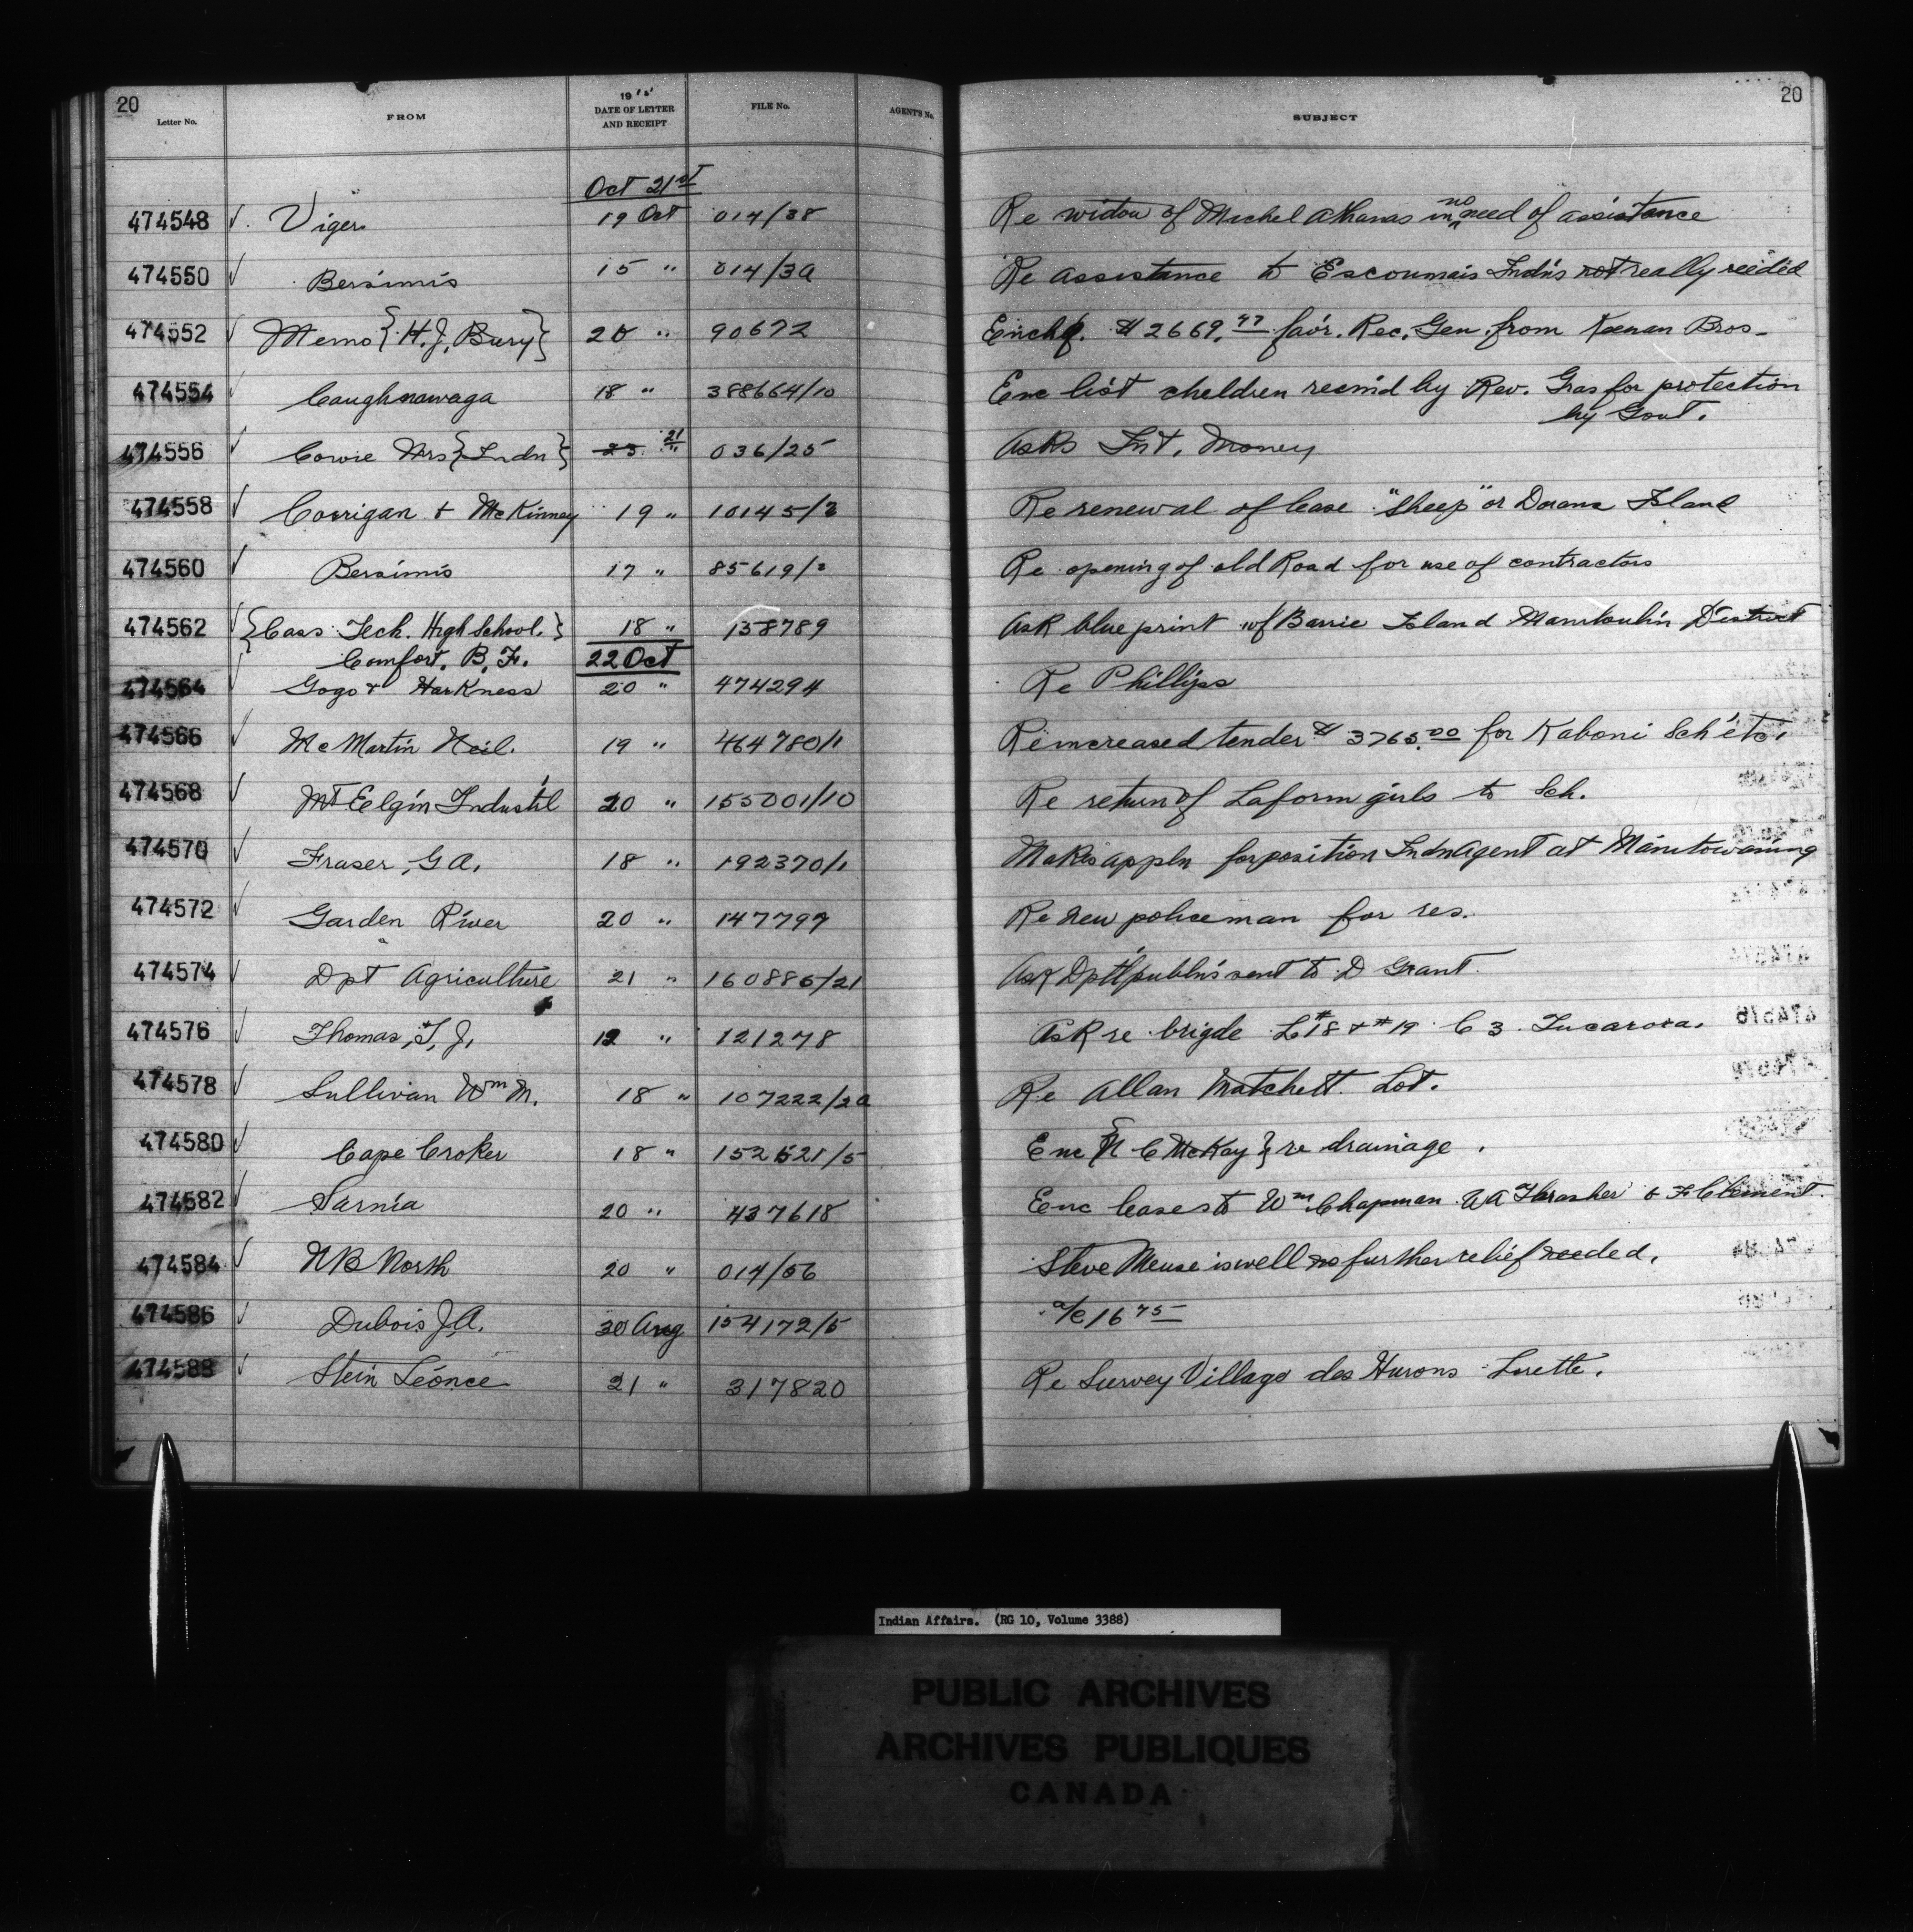 20 20
Letter No. FROM 19 15 DATE OF LETTER AND RECEIPT FILE No. AGENT'S No. SUBJECT
Oct 21st
474548 Viger 19 Oct 014/38 Re widow of Michel Athanas in no need of assistance
474550 Bersimis 15 " 014/3A Re assistance to Escoumais Indn's not really needed
474552 Memo {H. J. Bury} 20 " 90672 Enc hq. $2669.47 fav'r. Rec. Gen. from Keenan Bros-
474554 Caughnawaga 18 " 388664/10 Enc list cheldren recm'd by Rev. Gras for protection
by Govt.
474556 Cowie Mrs {Indn} 23 21 " 036/25 Asks Int. Money
474558 Corrigan & McKinney 19 " 10145/2 Re renewal of lease "Sheep" or Dorans Island
474560 Bersimis 17 " 85619/2 Re opening of old Road for use of contractors
474562 {Cass Tech. High School.} 18 " 158789 Ask blue print of Barrie Island Manitoulin District
Comfort, B. F. 22 Oct
474564 Gogo & Harkness 20 " 474294 Re Phillips
474566 McMartin Neil. 19 " 464780/1 Re increased tender $3765.00 for Kaboni Sch etc.
474568 Mt Eelgin Industr'l 20 " 155001/10 Re return of Laform girls to Sch.
474570 Fraser, G A. 18 " 192370/1 Makes appln for position Indn Agent at Manitowaning
474572 Garden River 20 " 147799 Re new policeman for res.
474574 Dpt Agriculture 21 " 160886/21 Ask Dptl publn's sent to D Grant.
474576 Thomas, T, J, 19 " 121278 Ask re brigde L #18 & #19 C 3 Tucarora.
474578 Sullivan Wm M. 18 " 107222/2a Re Allan Matchett Lot.
474580 Cape Croker 18 " 152621/5 Enc {N C McKay} re drainage.
474582 Sarnia 20 " 437618 Enc leases to Wm Chapman W A Thrasher & F Clement.
474584 N B North 20 " 014/56 Steve Meuse is well no further relief needed.
474586 Dubois J A. 30 Aug 154172/5 a/c 16 75
474588 Stein Léonce 21 " 317820 Re Survey Village des Hurons Lorette.
Indian Affairs. (RG 10, Volume 3388)
PUBLIC ARCHIVES
ARCHIVES PUBLIQUES
CANADA